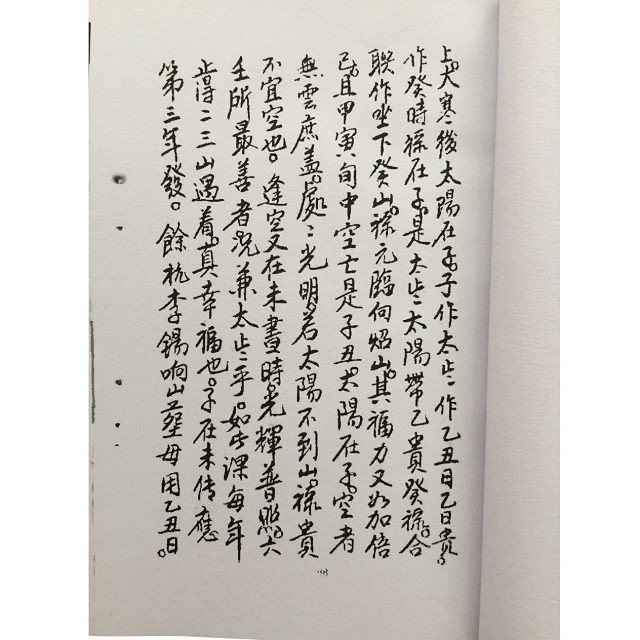 上。大寒後太陽在子。子作太歲。作乙丑日乙日貴。
作癸時祿在子。是太歲太陽帶乙貴癸祿。合
聚作坐下癸山。祿元臨向照山。其福力又如加倍
已。且甲寅旬中空亡是子丑。太陽在子。空者
無雲庶盖。處〻光明。若太陽不到山。祿貴
不宜空也。逢空又在未晝時。光輝普照。六
壬所最善者。况兼太歲乎。如此課每年
止得二三山遇着。真幸福也。子在未传應
第三年發。餘杭李錫响山塟母用乙丑日。